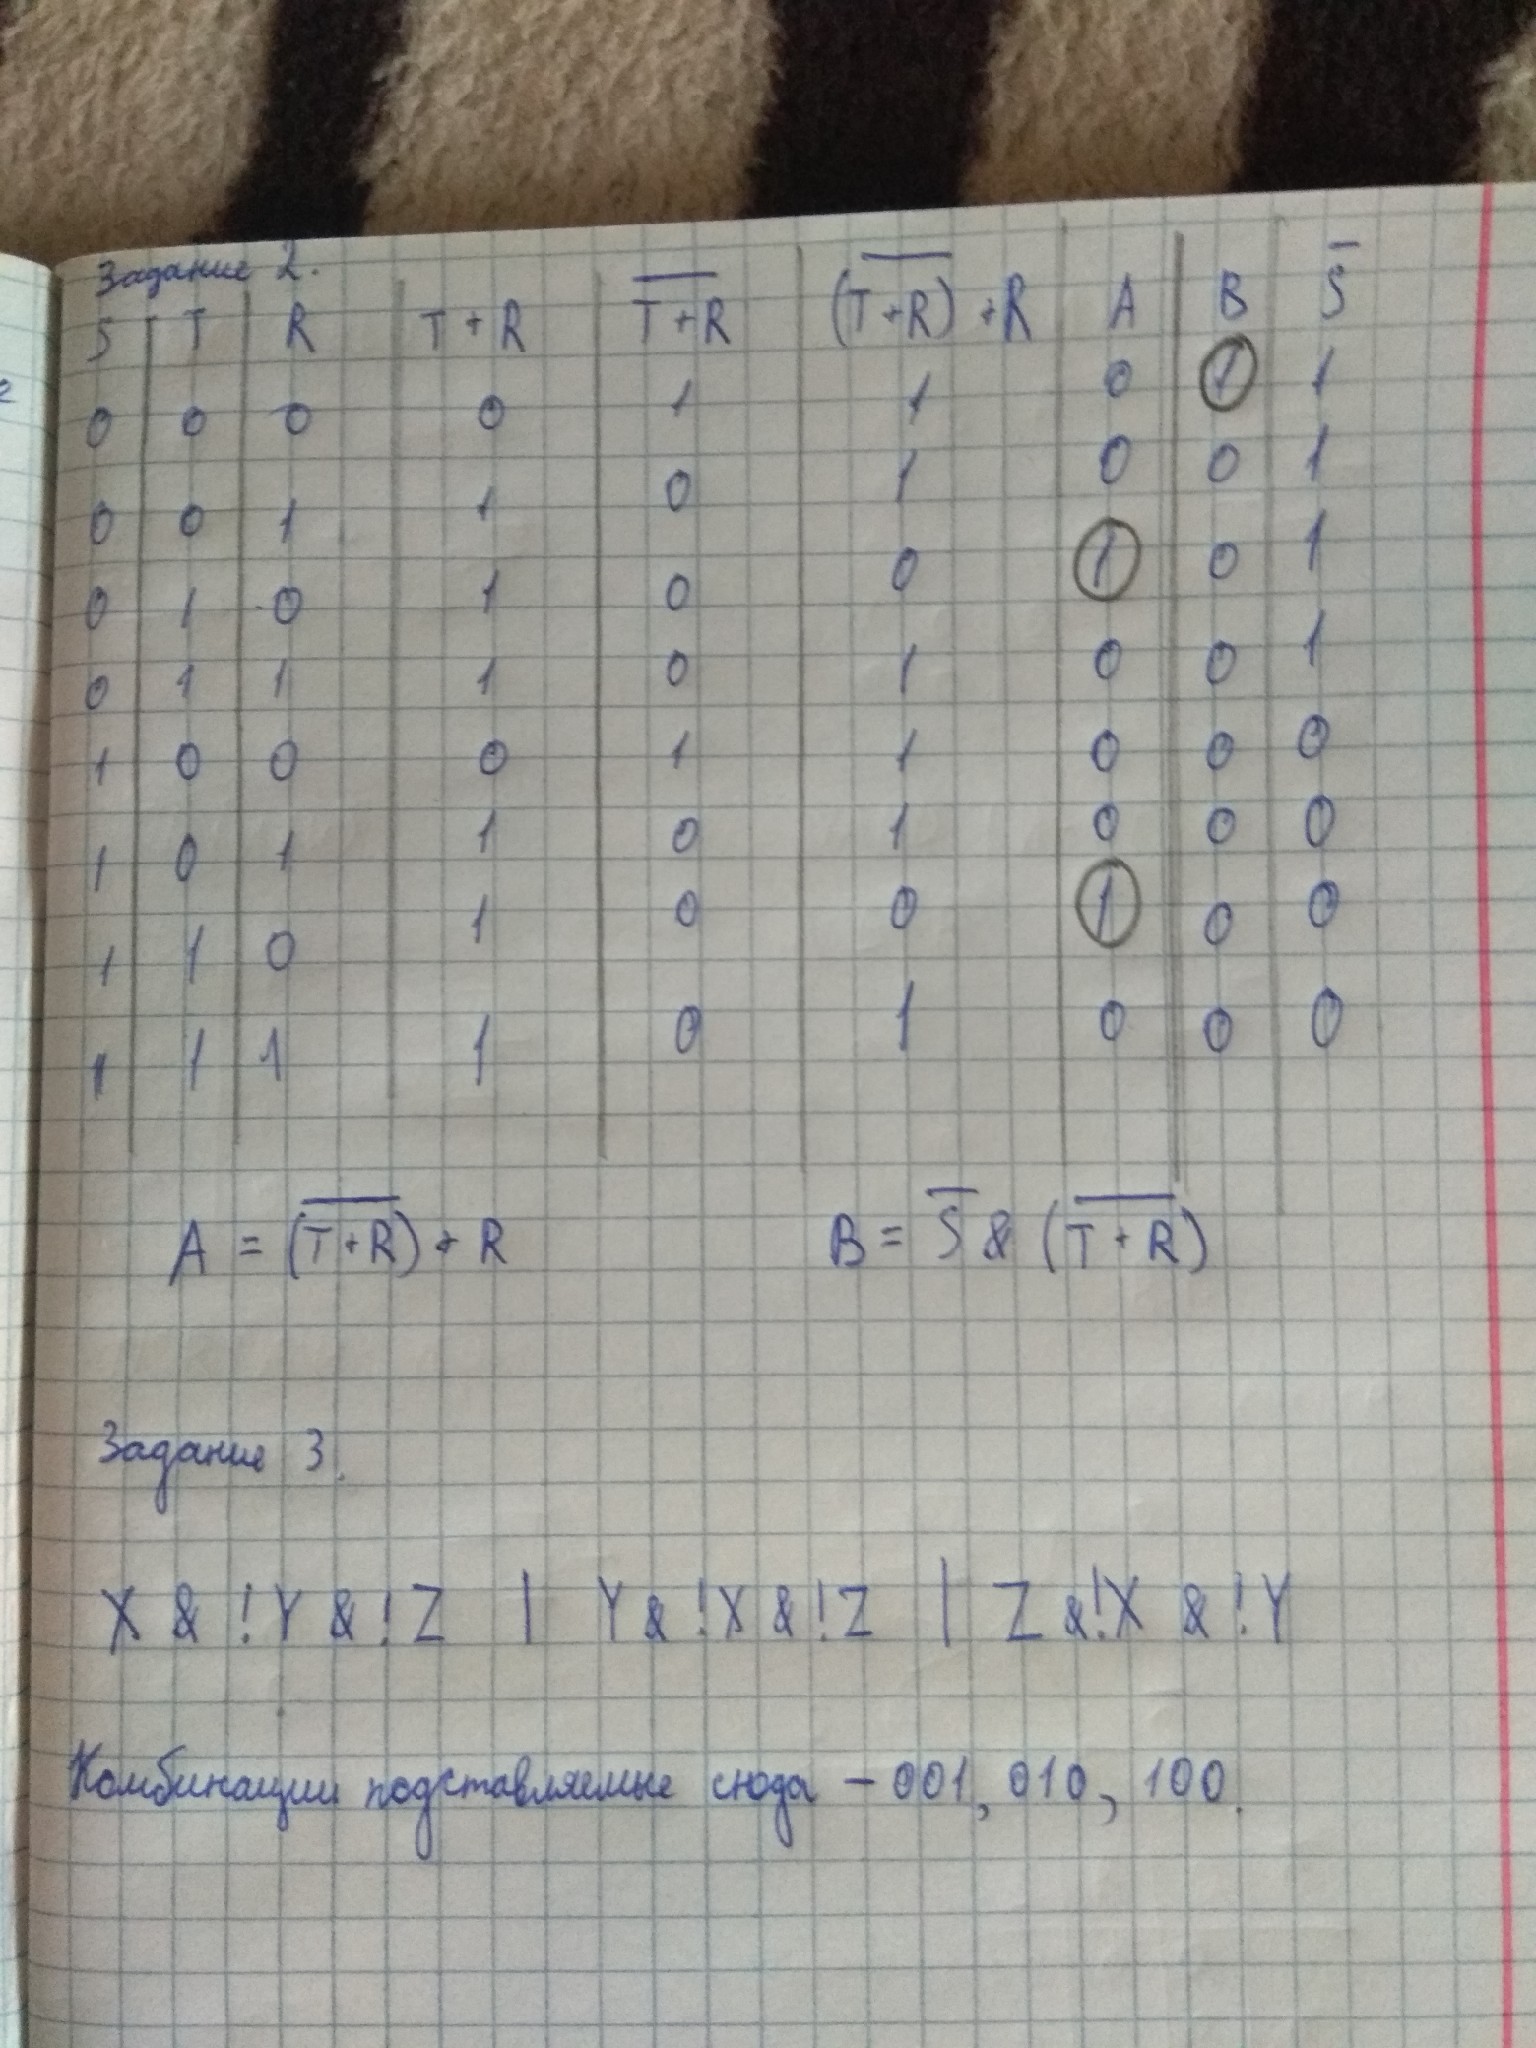 Задание 2.
S T R T+R T̅+̅R̅ (T̅+̅R̅)+R A B S̅
0 0 0 0 1 1 0 1 1
0 0 1 1 0 1 0 0 1
0 1 0 1 0 0 1 0 1
0 1 1 1 0 1 0 0 1
1 0 0 0 1 1 0 0 0
1 0 1 1 0 1 0 0 0
1 1 0 1 0 0 1 0 0
1 1 1 1 0 1 0 0 0
A = (T̅+̅R̅) + R B = S̅ & (T̅+̅R̅)
Задание 3.
X & !Y & !Z | Y & !X & !Z | Z & !X & !Y
Комбинации подставляемые сюда – 001, 010, 100.